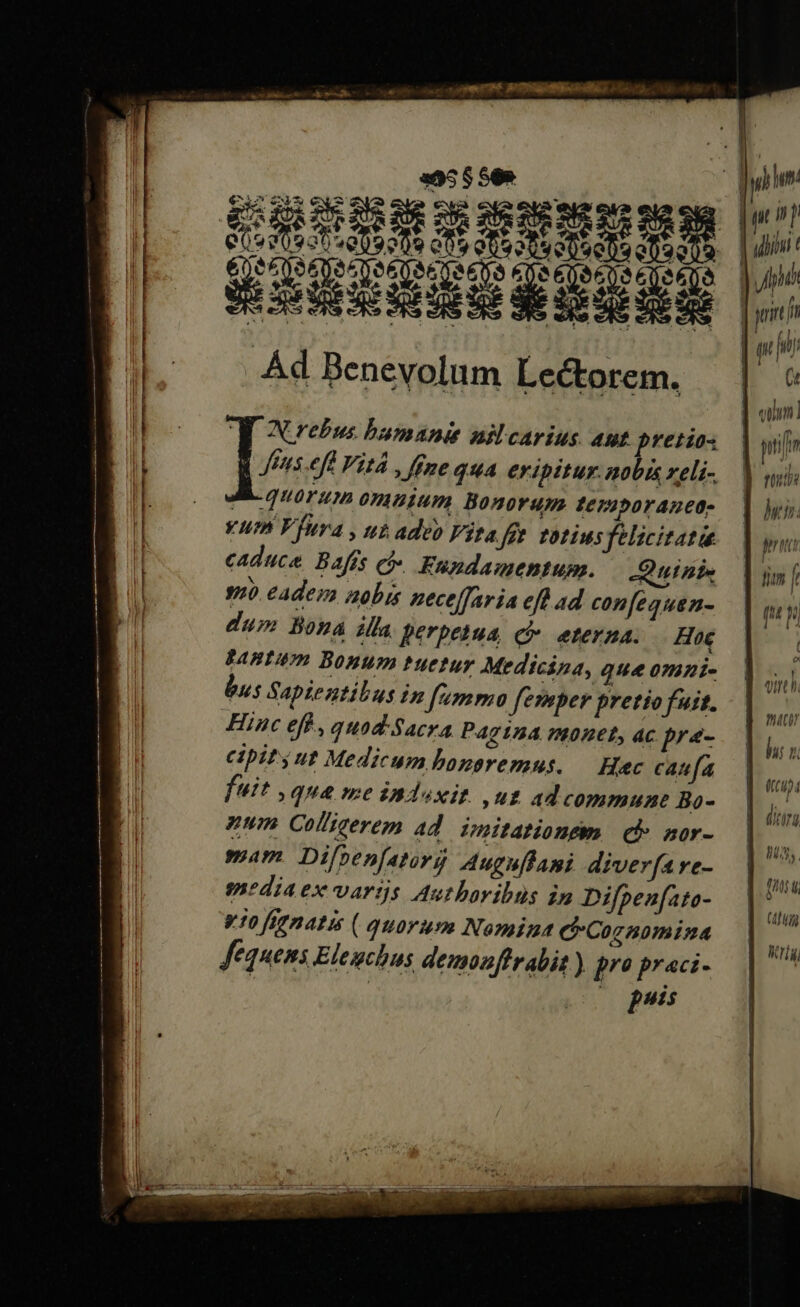 §
Ad Benevolum Lectorem.
IN rebus humanis nil carius aut pretio-
ſius eſt Vitâ, ſine qua eripitur nobis reli-
quorum omnium Bonorum temporaneo-
rum Vſura, ut adeò Vita ſit totius felicitatis
caducæ Baſis & Fundamentum. Quini-
mò eadem nobis neceſſaria eſt ad conſequen-
dum Bona illa perpetua & æterna. Hoc
tantum Bonum tuetur Medicina, quæ omni-
bus Sapientibus in ſummo ſemper pretio fuit.
Hinc eſt, quod Sacra Pagina monet, ac præ-
cipit, ut Medicum honoremus. Hæc cauſa
fuit, quæ me induxit, ut ad commune Bo-
num Colligerem ad imitationem & nor-
mam Diſpenſatorij Auguſtani diverſa re-
media ex varijs Authoribus in Diſpenſato-
rio ſignatis (quorum Nomina & Cognomina
ſequens Elenchus demonſtrabit) pro præci-
puis